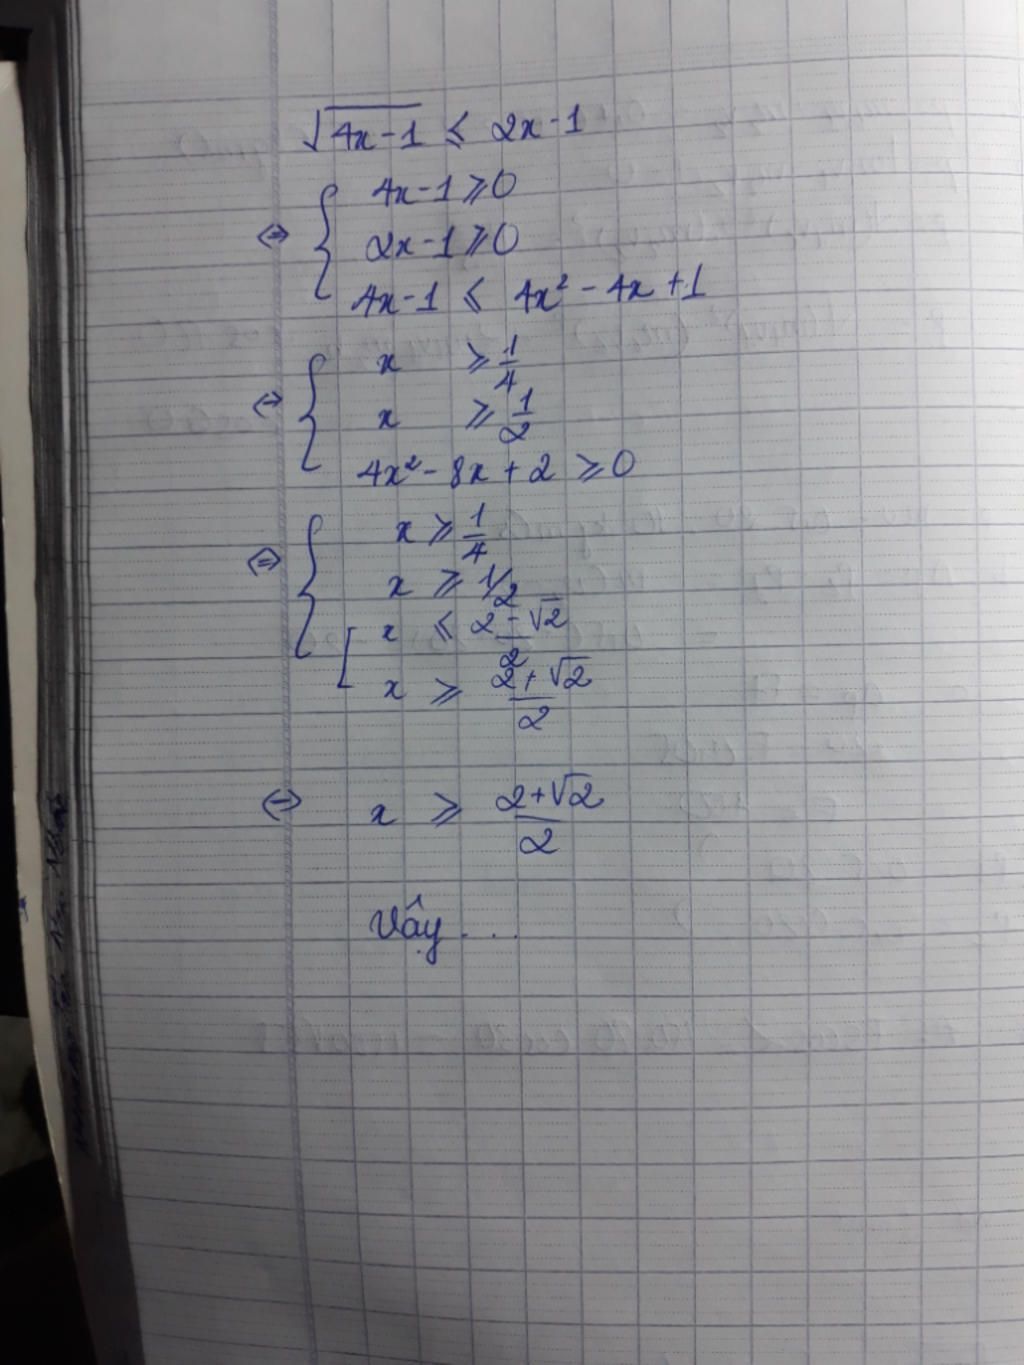 √(4x-1) ≤ 2x-1
⇔ { 4x-1 ≥ 0
2x-1 ≥ 0
4x-1 ≤ 4x² - 4x + 1
⇔ { x ≥ 1/4
x ≥ 1/2
4x² - 8x + 2 ≥ 0
⇔ { x ≥ 1/4
x ≥ 1/2
[ x ≤ (2-√2)/2
x ≥ (2+√2)/2
⇔ x ≥ (2+√2)/2
Vậy ...